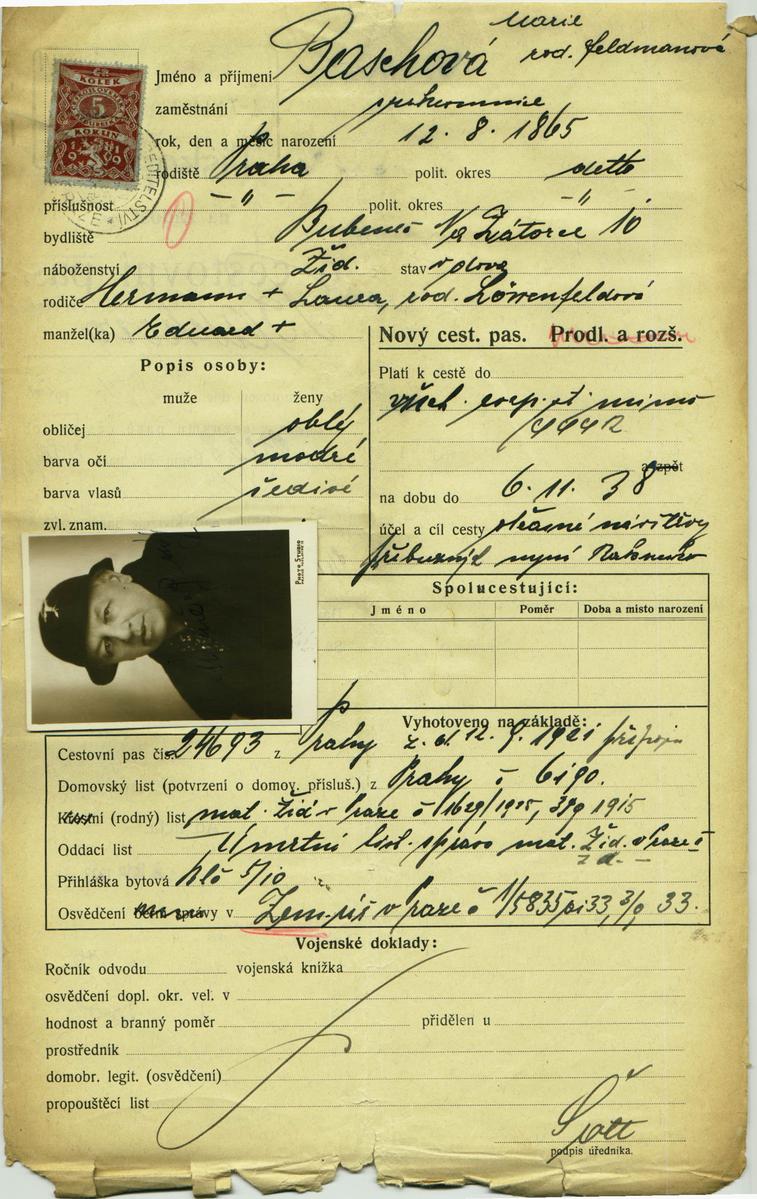 Marie
Jméno a příjmení Baschová rod. Feldmanová
ČR
KOLEK
5
KORUN
1919
zaměstnání soukromnice
rok, den a měsíc narození 12. 8. 1865
rodiště Praha polit. okres detto
příslušnost -"- polit. okres -"-
bydliště Bubeneč Na Zátorce 10
náboženství Žid. stav vdova
rodiče Hermann + Laura, rod. Löwenfeldová
manžel(ka) Eduard +
Nový cest. pas. Prodl. a rozš.
Popis osoby:
muže ženy
obličej oblý
barva očí modré
barva vlasů šedivé
zvl. znam.
Platí k cestě do
všech. evrop. st. mimo
a zpět
na dobu do 6. 11. 38
účel a cíl cesty občasné návštěvy
příbuzných nyní Rakousko
PHOTO STUDIO
Spolucestující:
Jméno Poměr Doba a místo narození
Vyhotoveno na základě:
Cestovní pas čís. 24693 z Prahy z. d. 12. 9. 1921
Domovský list (potvrzení o domov. přísluš.) z Prahy č 6190.
Křestní (rodný) list mat. žid v Praze č 1629/1915, 39 1915
Oddací list Úmrtní list. správa mat. Žid. v Praze č
z d. —
Přihláška bytová 5/10
Osvědčení berní správy v Zem. úř v Praze č 1/5835 ai 33, 33.
Vojenské doklady:
Ročník odvodu vojenská knížka
osvědčení dopl. okr. vel. v
hodnost a branný poměr přidělen u
prostředník
domobr. legit. (osvědčení)
propouštěcí list
podpis úředníka.